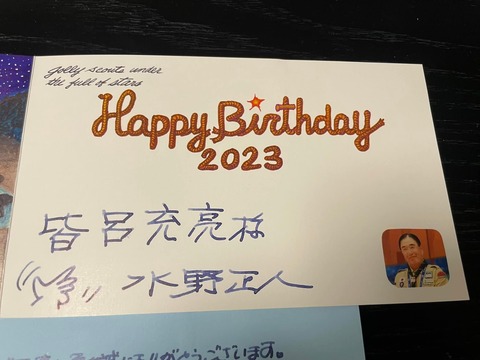 Jolly scouts under
the full of stars
Happy Birthday
2023
皆呂充亮様
水野正人
がとうございます。